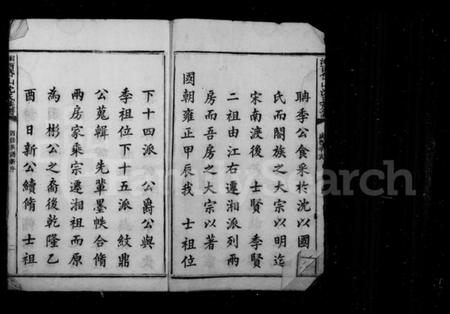 聃季公食采於沈以國
氏而閤族之大宗以明迄
宋南渡後 士賢 季賢
二祖由江右遷湘派列兩
房而吾房之大宗以著
國朝雍正甲辰我 士祖位
下十四派 公爵公與
季祖位下十五派 紋鼎
公蒐輯 先輩墨帙合脩
兩房家乘宗遷湘祖而原
為彬公之裔後乾隆乙
酉 日新公續脩 士祖